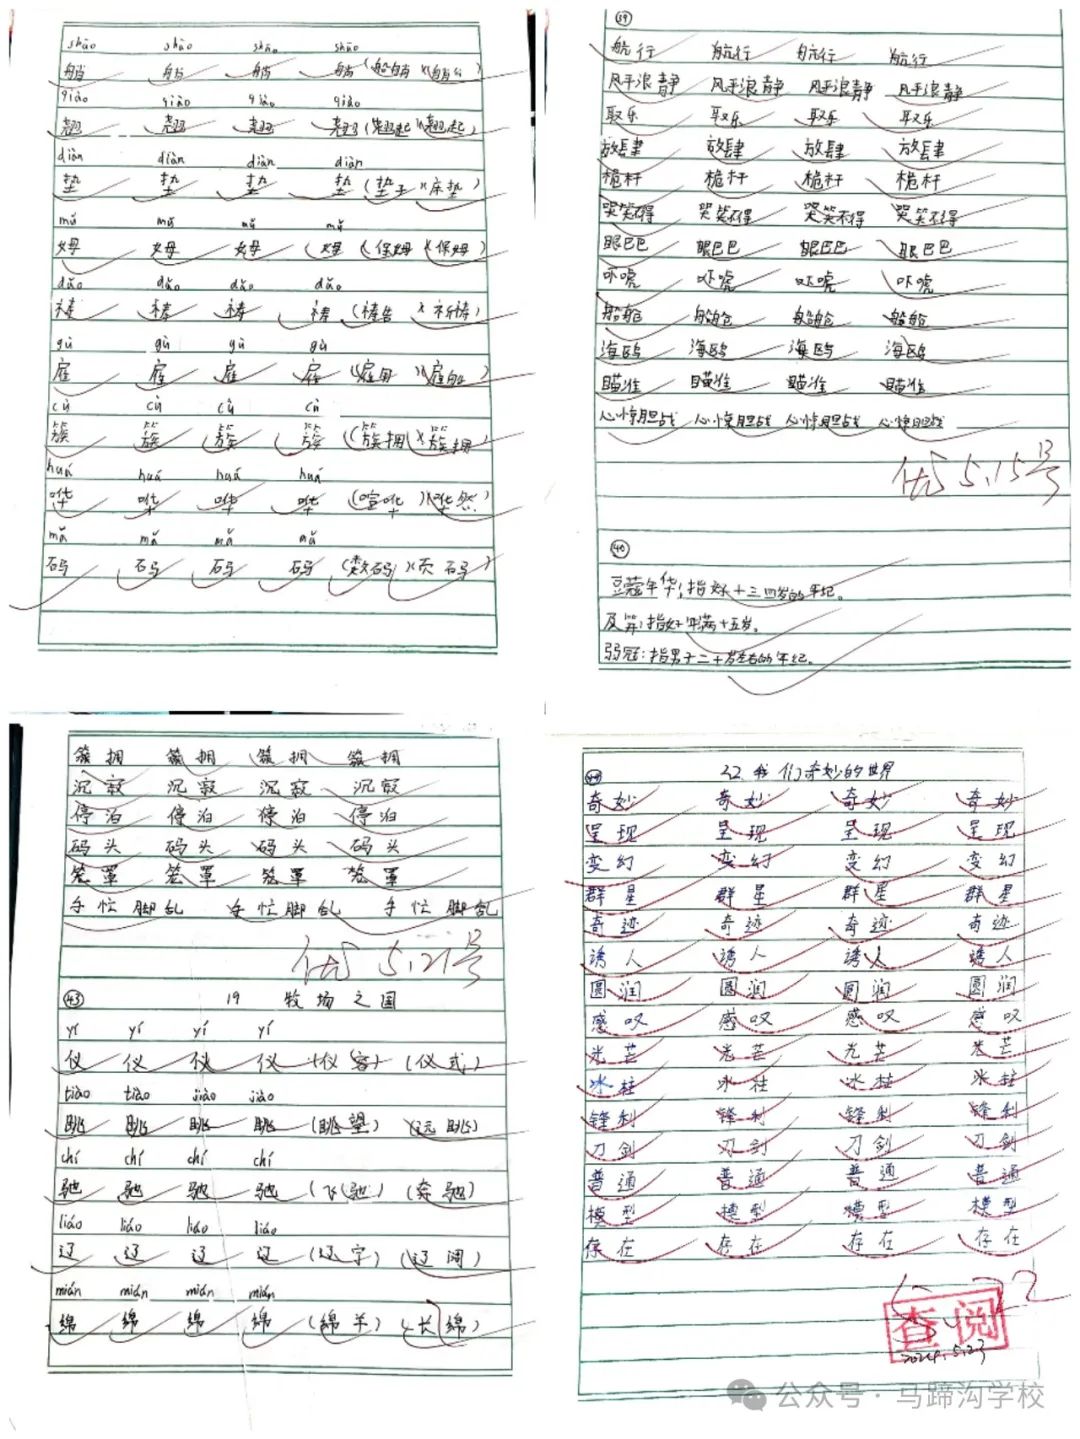 shāo shāo shāo shāo
艄 艄 艄 艄 (船艄)(艄公)
qiào qiào qiào qiào
翘 翘 翘 翘 (翘起)(翘起)
diàn diàn diàn diàn
垫 垫 垫 垫 (垫子)(床垫)
mǔ mǔ mǔ mǔ
姆 姆 姆 姆 (保姆)(保姆)
dǎo dǎo dǎo dǎo
祷 祷 祷 祷 (祷告)(祈祷)
gù gù gù gù
雇 雇 雇 雇 (雇用)(雇船)
cù cù cù cù
簇 簇 簇 簇 (簇拥)(簇拥)
huá huá huá huá
哗 哗 哗 哗 (喧哗)(哗然)
mǎ mǎ mǎ mǎ
码 码 码 码 (数码)(页码)
39
航行 航行 航行 航行
风平浪静 风平浪静 风平浪静 风平浪静
取乐 取乐 取乐 取乐
放肆 放肆 放肆 放肆
桅杆 桅杆 桅杆 桅杆
哭笑不得 哭笑不得 哭笑不得 哭笑不得
眼巴巴 眼巴巴 眼巴巴 眼巴巴
吓唬 吓唬 吓唬 吓唬
船舱 船舱 船舱 船舱
海鸥 海鸥 海鸥 海鸥
瞄准 瞄准 瞄准 瞄准
心惊胆战 心惊胆战 心惊胆战 心惊胆战
优 5.15号
40
豆蔻年华:指女子十三四岁的年纪。
及笄:指女子年满十五岁。
弱冠:指男子二十岁左右的年纪。
簇拥 簇拥 簇拥 簇拥
沉寂 沉寂 沉寂 沉寂
停泊 停泊 停泊 停泊
码头 码头 码头 码头
笼罩 笼罩 笼罩 笼罩
手忙脚乱 手忙脚乱 手忙脚乱
优 5.21号
43 19 牧场之国
yí yí yí yí
仪 仪 仪 仪 (仪容) (仪式)
tiào tiào jiào jiào
眺 眺 眺 眺 (眺望) (远眺)
chí chí chí chí
驰 驰 驰 驰 (飞驰) (奔驰)
liáo liáo liáo liáo
辽 辽 辽 辽 (辽宁) (辽阔)
mián mián mián mián
绵 绵 绵 绵 (绵羊) (长绵)
44 22、我们奇妙的世界
奇妙 奇妙 奇妙 奇妙
呈现 呈现 呈现 呈现
变幻 变幻 变幻 变幻
群星 群星 群星 群星
奇迹 奇迹 奇迹 奇迹
诱人 诱人 诱人 诱人
圆润 圆润 圆润 圆润
感叹 感叹 感叹 感叹
光芒 光芒 光芒 光芒
冰柱 冰柱 冰柱 冰柱
锋利 锋利 锋利 锋利
刀剑 刀剑 刀剑 刀剑
普通 普通 普通 普通
模型 模型 模型 模型
存在 存在 存在 存在
查阅
2024.5.23
公众号·马蹄沟学校